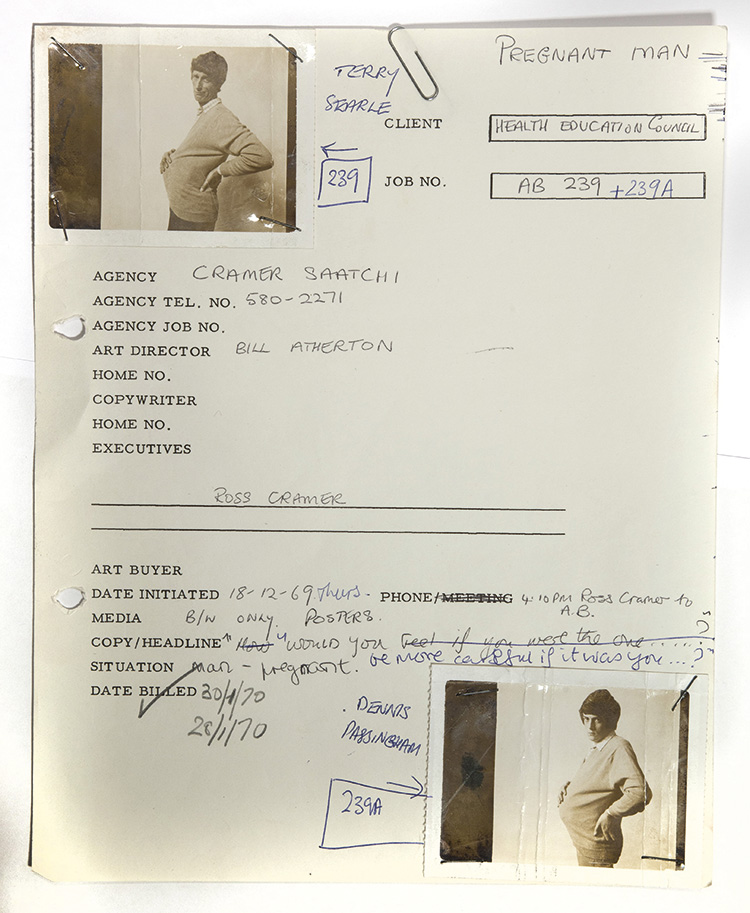 PREGNANT MAN
TERRY
SEARLE
CLIENT HEALTH EDUCATION COUNCIL
239
JOB NO. AB 239 +239A
AGENCY CRAMER SAATCHI
AGENCY TEL. NO. 580-2271
AGENCY JOB NO.
ART DIRECTOR BILL ATHERTON
HOME NO.
COPYWRITER
HOME NO.
EXECUTIVES
ROSS CRAMER
ART BUYER
DATE INITIATED 18-12-69 Thurs. PHONE/MEETING 4:10 PM Ross Cramer to
A.B.
MEDIA B/W ONLY. POSTERS.
COPY/HEADLINE "How "WOULD YOU feel if you were the one ......?
SITUATION man - pregnant. be more careful if it was you ...?
DATE BILLED 30/1/70
28/1/70
DENNIS
PASSINGHAM
239A